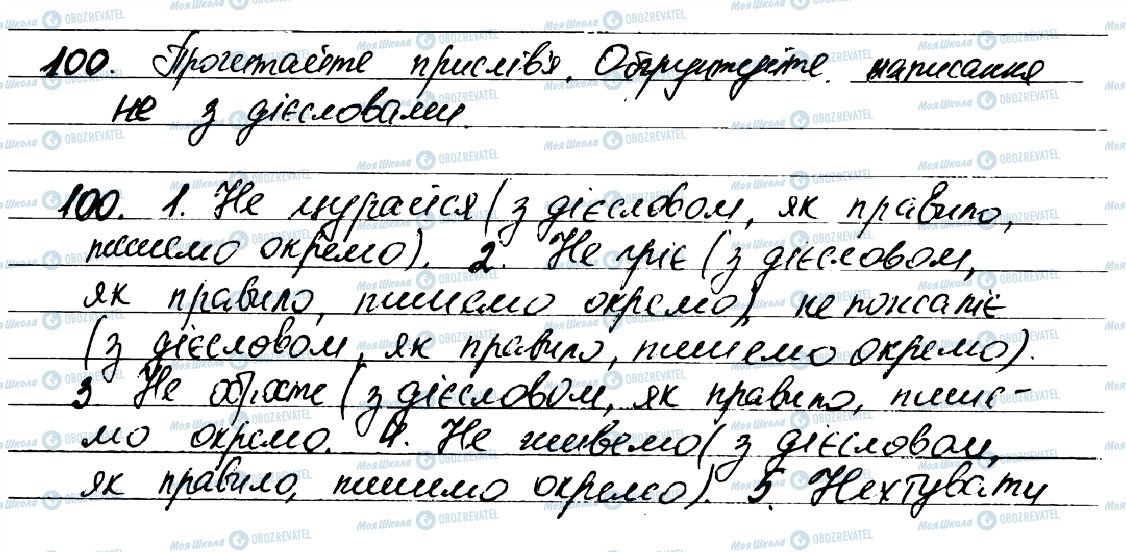 100. Прочитайте прислів'я. Обґрунтуйте написання
не з дієсловами.
100. 1. Не цурайся (з дієсловом, як правило,
пишемо окремо). 2. Не гріє (з дієсловом,
як правило, пишемо окремо), не пожаліє
(з дієсловом, як правило, пишемо окремо).
3 Не обріте (з дієсловом, як правило, пише-
мо окремо. 4. Не живемо (з дієсловом,
як правило, пишемо окремо). 5. Нехтувати